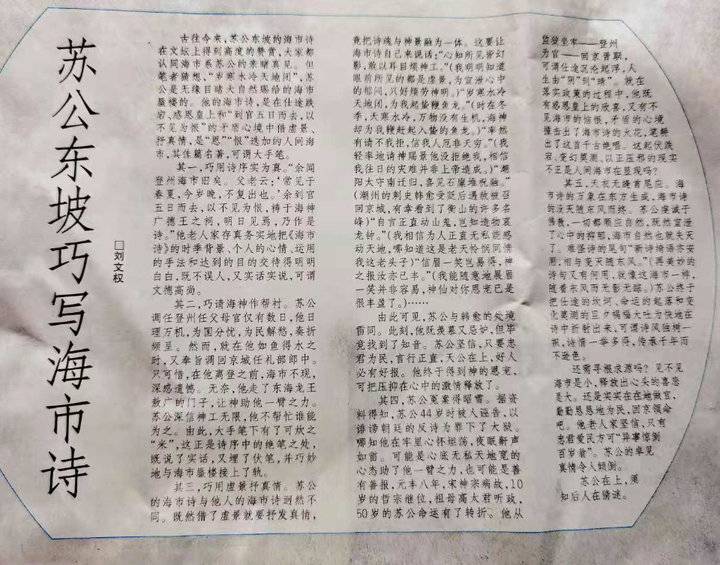 苏公东坡巧写海市诗
□刘文权
古往今来，苏公东坡的海市诗
在文坛上得到高度的赞赏，大家都
认同海市系苏公的亲睹真见。但
笔者猜想，“岁寒水冷天地闭”，苏
公是无缘目睹大自然赐给的海市
蜃楼的。他的海市诗，是在仕途跌
宕、感恩皇上和“到官五日而去，以
不见为恨”的矛盾心境中借虚景、
抒真情，是“恩”“恨”迭加的人间海
市，其诛篇名著，可谓大手笔。
其一，巧用诗序实为真。“余闻
登州海市旧矣。父老云：‘常见于
春夏，今岁晚，不复出也。’余到官
五日而去，以不见为恨，祷于海神
广德王之州，明日见焉，乃作是
诗。”他老人家存真务实地把《海市
诗》的时季背景、个人的心情、运用
的手法和达到的目的交待得明明
白白，既不误人，又实话实说，可谓
文德高尚。
其二，巧请海神作帮衬。苏公
调任登州任父母官仅有数日，他日
理万机，为国分忧，为民解愁，奏折
频呈。然而，就在他如鱼得水之
时，又奉旨调回京城任礼部郎中。
只可惜，在他离登之前，海市不现，
深感遗憾。无奈，他走了东海龙王
敖广的门子，让神助他一臂之力。
苏公深信神工无限，他不帮忙谁能
为之。由此，大手笔下有了可炊之
“米”，这正是诗序中的绝笔之处，
既说了实话，又埋了伏笔，并巧妙
地与海市蜃楼接上了轨。
其三，巧用虚景抒真情。苏公
的海市诗与他人的海市诗迥然不
同。既然借了虚景就要抒发真情，
竟把诗魂与神景融为一体。这要让
海市诗自己来说话：“心知所见皆幻
影，敢以耳目烦神工。”（我明明知道
眼前所见的都是虚景，为宣泄心中
的郁闷，只好烦劳神明。）“岁寒水冷
天地闭，为我起蛰鞭鱼龙。”（时在冬
季，天寒水冷，万物没有生机，海神
却为我鞭赶起入蛰的鱼龙。）“率然
有请不我拒，信我人厄非天穷。”（我
轻率地请神赐景他没拒绝我，相信
我往日的灾难并非上帝造成。）“潮
阳太守南迁归，喜见石廪堆祝融。”
（潮州的刺史韩愈受贬后遇赦被召
回京城，有幸看到了衡山的许多名
峰）“自言正直动山鬼，岂知造物哀
龙钟。”（我相信为人正直无私能感
动天地，哪知道这是老天怜悯同情
我这老头子）“信眉一笑岂易得，神
之报汝亦已丰。”（我能随意地展眉
一笑并非容易，神仙对你恩宠已是
很丰盛了。）……
由此可见，苏公与韩愈的处境
雷同。此刻，他既羡慕又忌妒，但毕
竟找到了知音。苏公坚信，只要忠
君为民，言行正直，天公在上，好人
必有好报。他终于得到神的恩宠，
可把压抑在心中的激情释放了。
其四，苏公冤案得昭雪。据资
料得知，苏公44岁时被人诬告，以
诽谤朝廷的反诗为罪下了大狱。
哪知他在牢里心怀坦荡，夜眠鼾声
如雷。可能是心底无私天地宽的
心态助了他一臂之力，也可能是善
有善报，元丰八年，宋神宗病故，10
岁的哲宗继位，祖母高太君听政，
50岁的苏公命运有了转折。他从
监登坐牢——登州
为官——回京晋职，
可谓仕途沉沦起浮，人
生由“阴”到“晴”。就在
落实政策的过程中，他既
有感恩皇上的欣喜，又有不
见海市的恼恨，矛盾的心境
撞击出了海市诗的火花，笔翻
出了这首千古绝唱。这起伏跌
宕、变幻莫测、以正压邪的现实
不正是人间海市在显现吗？
其五，天衣无缝首尾应。海
市诗的万象在东方生成，海市诗
的没天随东风而终。苏公虔诚于
佛教，一切都顺应自然，既然宣泄
了心中的抑郁，海市自然也就失天
了。难怪诗的尾句“新诗绮语亦安
用，相与变灭随东风。”（再美妙的
诗句又有何用，就像这海市一样，
随着东风而无影无踪。）苏公终于
把仕途的坎坷、命运的起落和变
化莫测的三夕喝福大吐为快地在
诗中折射出来，可谓诗风独树一
帜，诗情一举多得，传承千年而
不逊色。
还需寻根求源吗？见不见
海市是个，释放出心头的喜怒
是大。还是实实在在地做官，
勤勤恳恳地为民，回京领命
吧。他老人家坚信，只有
忠君爱民方可“异事惊倒
百岁翁”。苏公的卓见
真情令人倾倒。
苏公在上，须
知后人在猜谜。